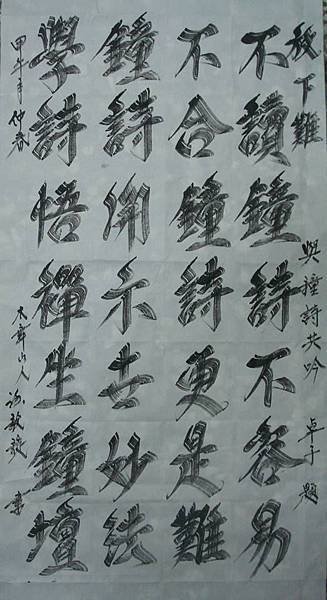 下難 與撞詩共吟 卓子題
不讀鐘詩不容易
不合鐘詩更是難
鐘詩開示玄妙法
學詩悟禪生鐘壇
甲午年仲春 山人 書